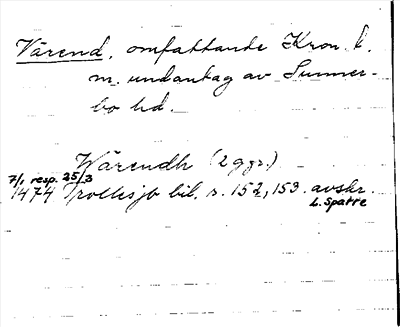 Värend, omfattande Kron. l.
m. undantag av Sunner-
bo hd.
Wärendh (2 ggr.)
7/1 resp. 25/3
1474 Trollesjb bil. s. 152, 153. avskr.
L. Sparre